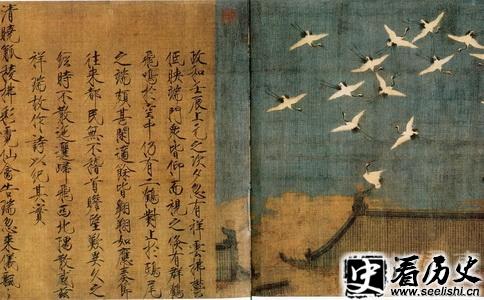 政和壬辰上元之次夕忽有祥雲拂鬱
低映端門衆皆仰而視之倏有群鶴
飛鳴於空中仍有二鶴對止於鴟尾
之端頗甚閒適餘皆翱翔如應奏節
往來都民無不稽首瞻望歎異久之
經時不散迤邐歸飛西北隅散感茲
祥瑞故作詩以紀其實
清曉觚稜拂彩霓仙禽告瑞忽來儀飄
史 看历史
www.seelishi.com